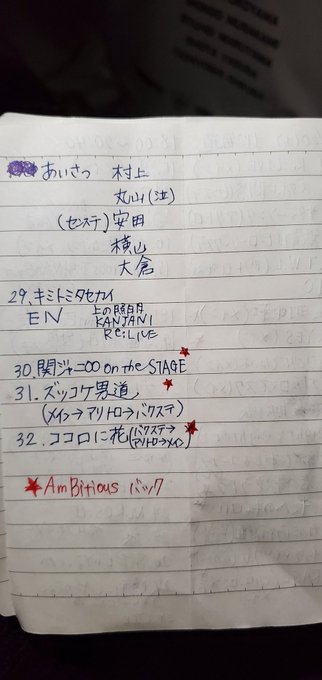 あいさつ 村上
丸山(泣)
(センステ)安田
横山
大倉
29.キミトミタセカイ
EN 上の照明
KANJANI
Re:LIVE
30.関ジャニ∞ on the STAGE
31.ズッコケ男道
(メイン→アリトロ→バクステ)
32.ココロに花(バクステ→
アリトロ→メイン)
★AmBitious バック